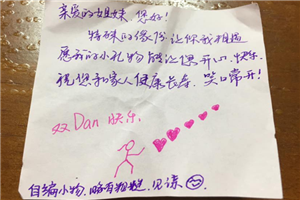 亲爱的姐妹 您好！
特殊的缘份让你我相遇
愿我的小礼物能让您开心、快乐
祝您和家人健康长寿、笑口常开！
双Dan快乐
自编小物，略有粗糙，见谅